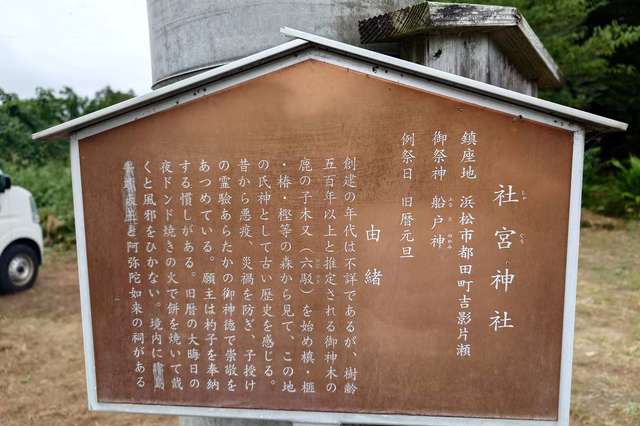 社宮神社
しゃ ぐう
鎮座地 浜松市都田町吉影片瀬
御祭神 船戸神
ふな と のかみ
例祭日 旧暦元旦
由緒
創建の年代は不詳であるが、樹齢
五百年以上と推定される御神木の
鹿の子木又(六駁)を始め槙・榧
・椿・樫等の森から見て、この地
の氏神として古い歴史を感じる。
昔から悪疫、災禍を防ぎ、子授け
の霊験あらたかの御神徳で崇敬を
あつめている。願主は杓子を奉納
する慣しがある。旧暦の大晦日の
夜ドンド焼きの火で餅を焼いて戴
くと風邪をひかない。境内に
と阿弥陀如来の祠がある